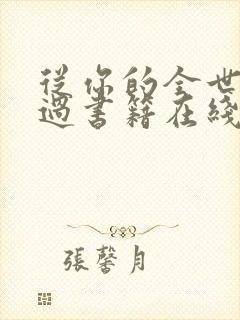 從你的全世
過書籍在綫
張馨月